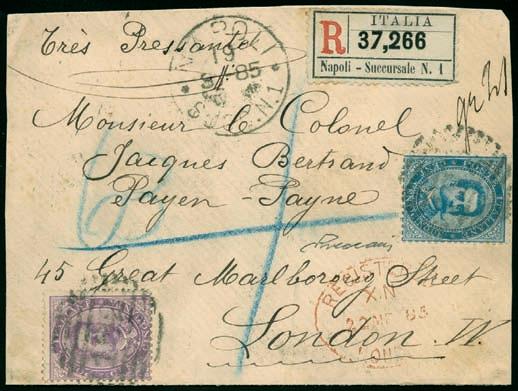 Très Pressante
NAPOLI
19
85
N.1
ITALIA
R 37,266
Napoli - Succursale N. 1
gr 21
Monsieur le Colonel
Jacques Bertrand
Payen-Payne
45 Great Marlborough Street
London. W.
REGISTE
85